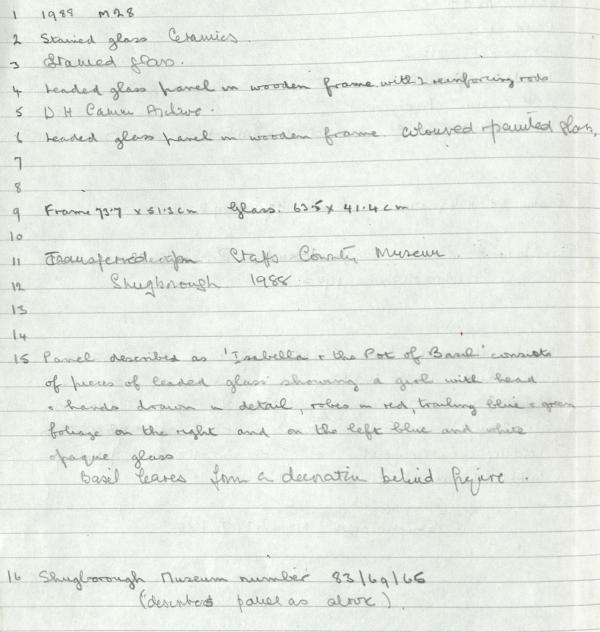 1 1988 M28
2 Stained glass Ceramics.
3 Stained glass.
4 Leaded glass panel in wooden frame with 2 reinforcing rods
5 D H
6 Leaded glass panel in wooden frame coloured + painted glass.
7
8
9 Frame 73.7 x 51.3 cm Glass. 63.5 x 41.4 cm
10
11 Transferred from Staffs County Museum
12 Shugborough 1988.
13
14
15 Panel described as 'Isabella + the Pot of Basil' consists
of pieces of leaded glass showing a girl with head
+ hands drawn in detail, robes in red, trailing blue + green
foliage on the right and on the left blue and white
opaque glass
Basil leaves form a decoration behind figure.
16 Shugborough Museum number 83/69/65
(describes panel as above)